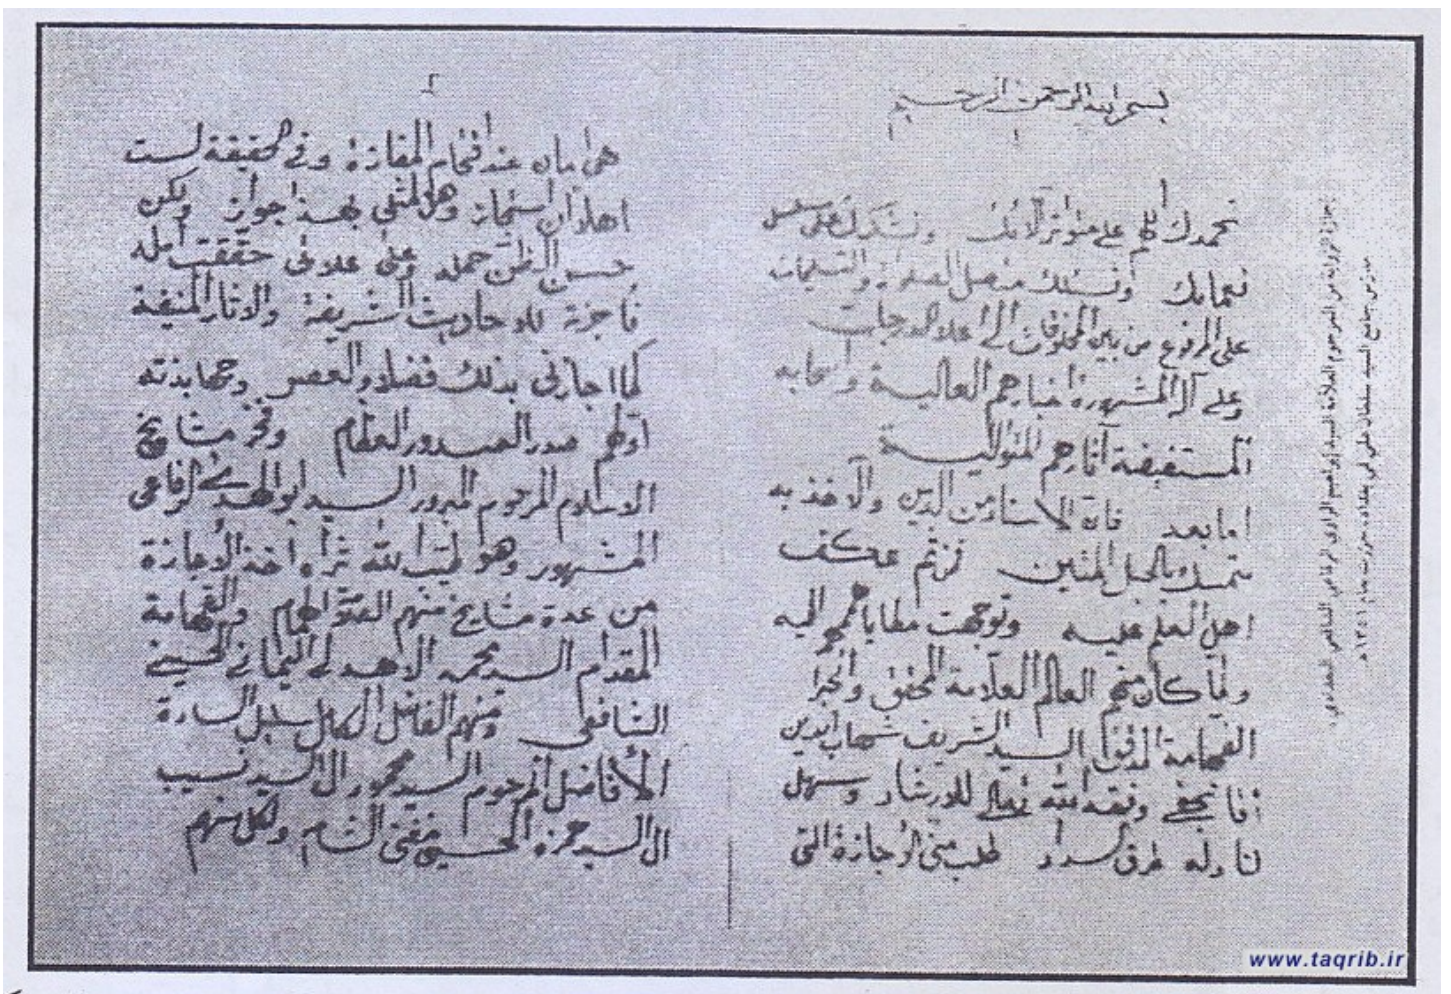 بسم الله الرحمن الرحيم
١
نحمدك اللهم على متواتر آلائك ونشكرك على مسلسل
نعمائك ونسئلك متصل الصلوات والتسليمات
على المرفوع من بين المخلوقات الى اعلا الدرجات
وعلى آله المشهورة اخبارهم العالية واصحابه
المستفيضة آثارهم المتوالية
اما بعد فان الاسناد من الدين والآخذ به
متمسك بالحبل المتين فمن ثم عكف
اهل العلم عليه وتوجهت مطايا هممهم اليه
ولما كان منهم العالم العلامة المحقق والحبر
الفهامة المدقق السيد الشريف شهاب الدين
آقا نجفي وفقه الله تعالى للارشاد وسهل
لنا وله طرق السداد طلب مني الاجازة التي
٢
هي امان عند اقتحام المفازة وفي الحقيقة لست
اهلا ان استجاز وهل لمثلي بهذا جواز ولكن
حسن الظن حمله وعلى علاتي حققت امله
فأجزته للاحاديث الشريفة والاثار المنيفة
كما اجازني بذلك فضلاء العصر وجهابذته
اولهم صدر الصدور العظام وفخر مشايخ
الاسلام المرحوم المبرور السيد ابو الهدى الرفاعي
المشهور وهو طيب الله ثراه اخذ الاجازة
من عدة مشايخ منهم القدوة الهمام والفهامة
المقدام السيد محمد الاهدلي اليماني الحسيني
الشافعي ومنهم الفاضل الكامل سليل السادة
الأفاضل المرحوم السيد محمود ال السيد نسيب
ال السيد حمزة الحسيني مفتي الشام ولكل منهم
اجازة الرواية من المرحوم العلامة السيد إبراهيم الراوي الرفاعي الشافعي البغدادي،
مدرس جامع السيد سلطان علي في بغداد، حررت بعام ١٣٥١هـ
www.taqrib.ir